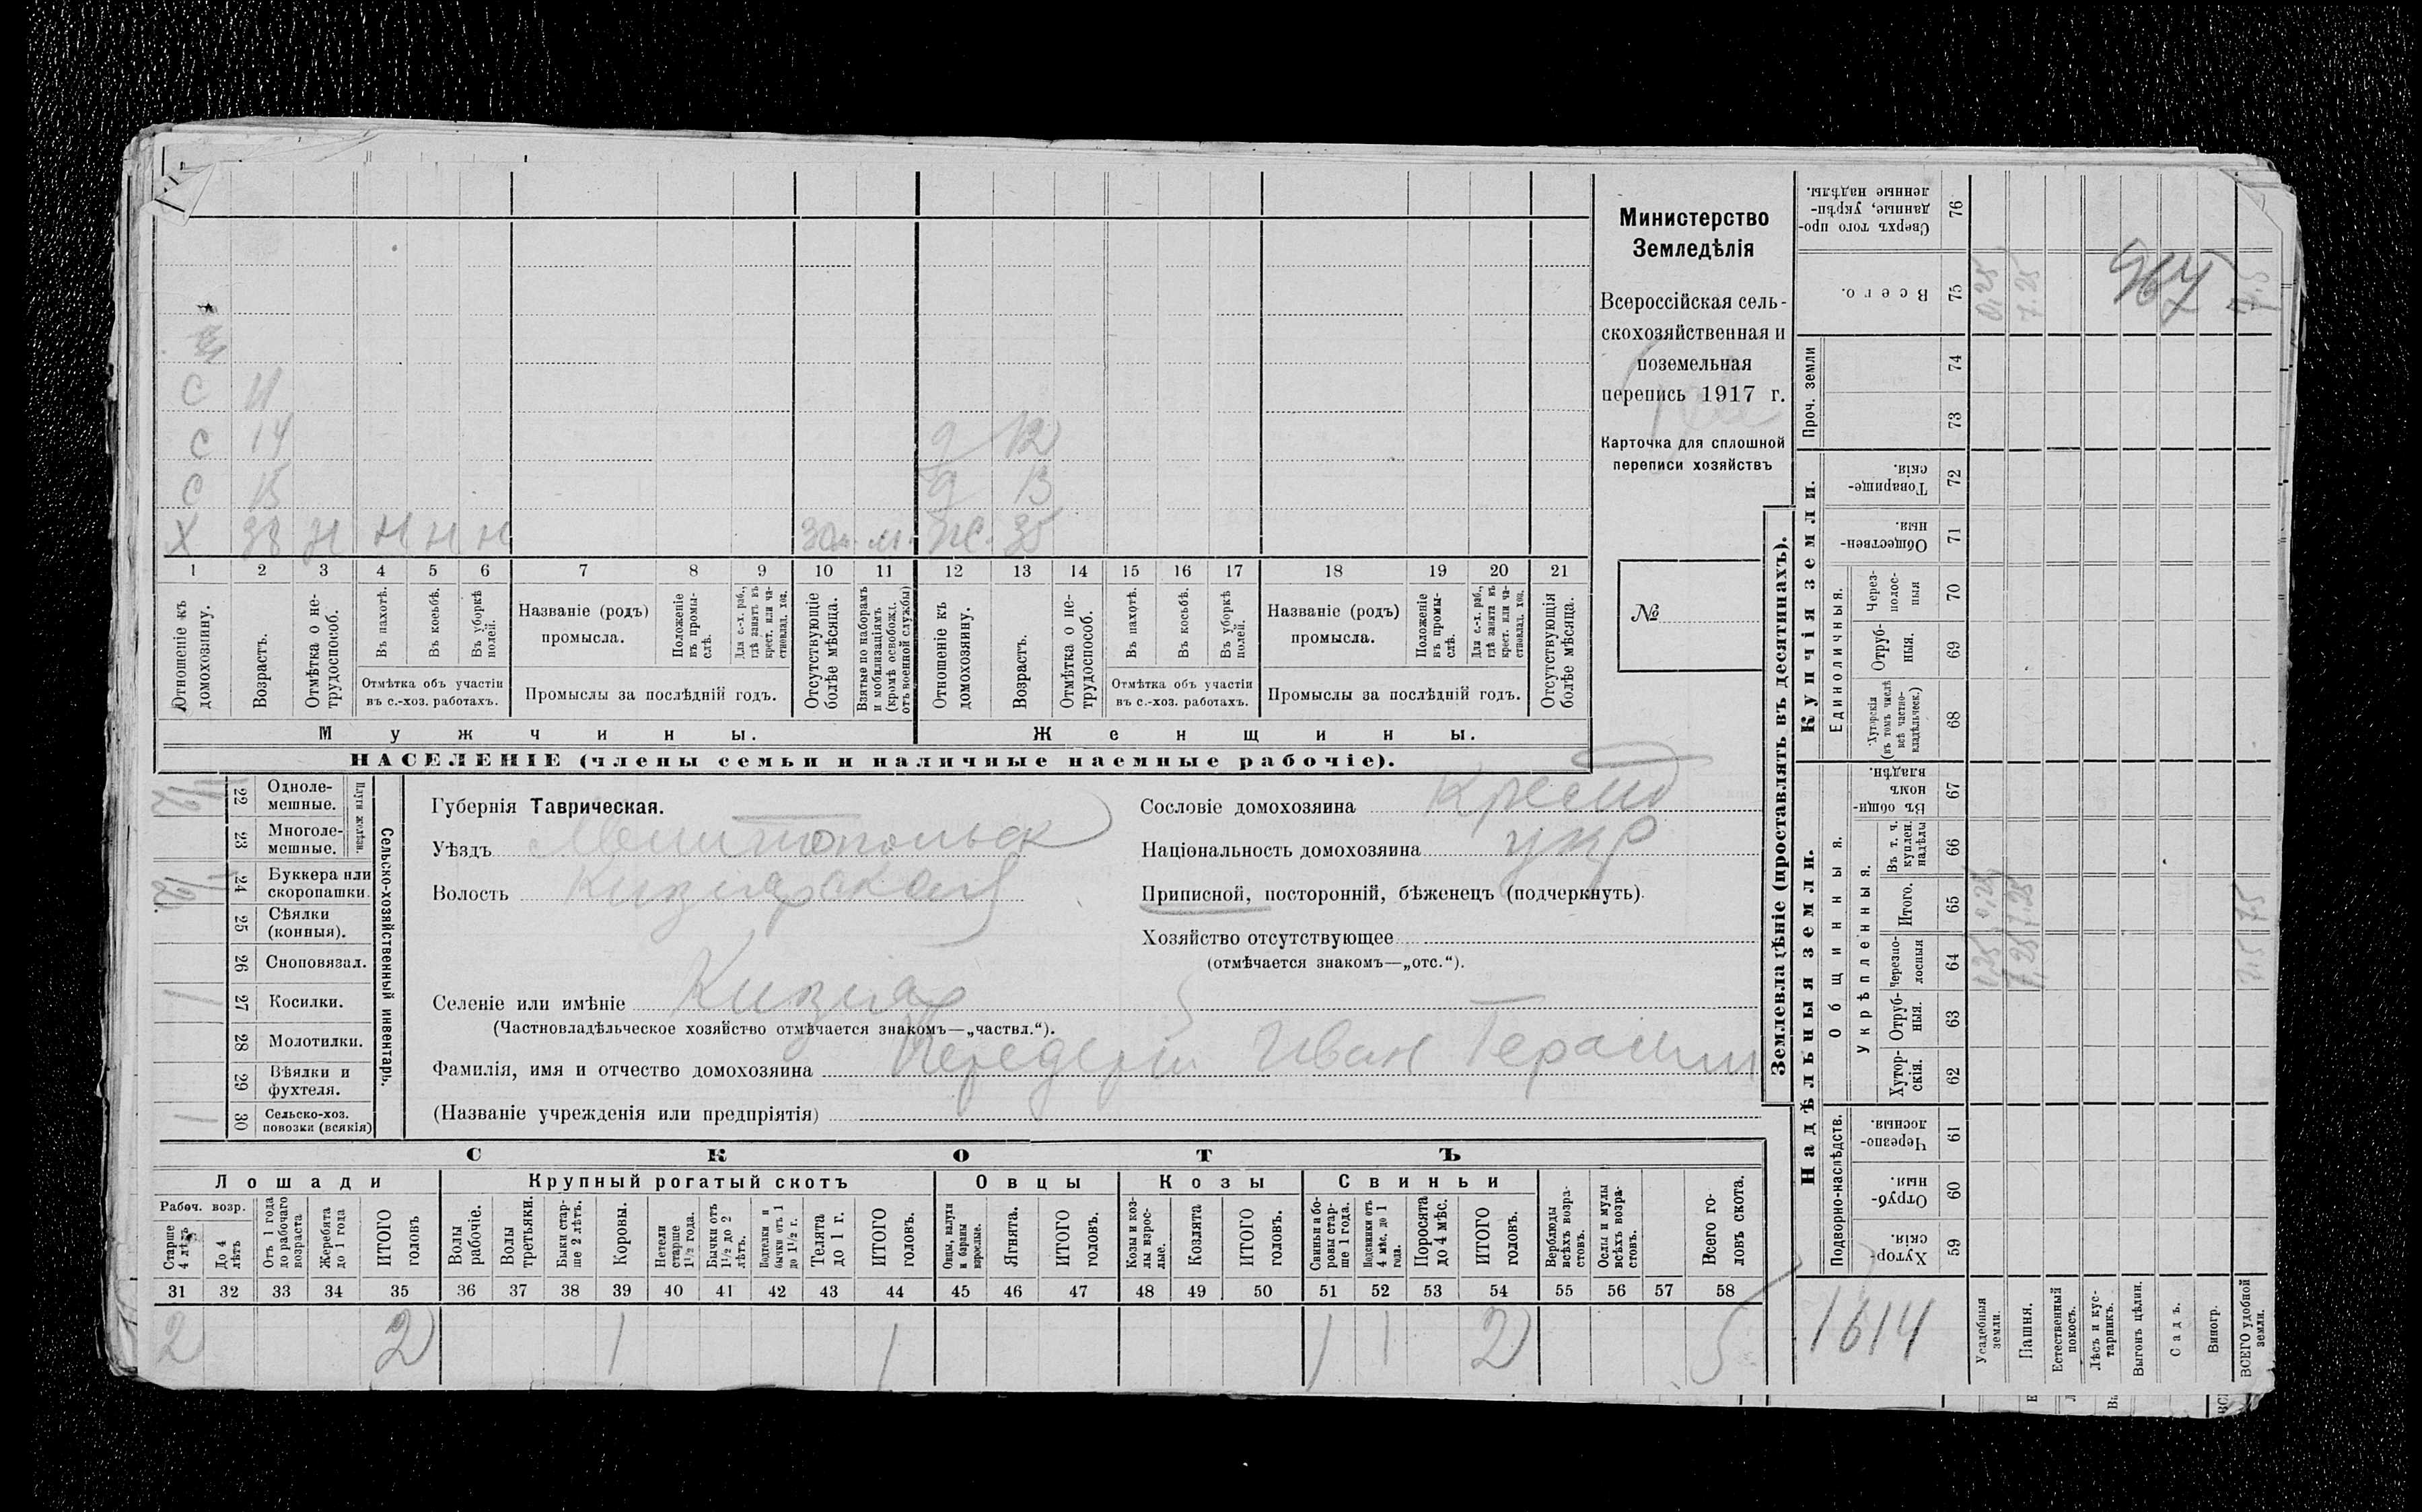 Министерство
Земледѣлія
Всероссійская сель-
скохозяйственная и
поземельная
перепись 1917 г.
Карточка для сплошной
переписи хозяйствъ
№
С 11
С 14
д 12
С 15
д 13
Х 38 Н Н Н Н м. ж. 35
1 2 3 4 5 6 7 8 9 10 11 12 13 14 15 16 17 18 19 20 21
Отношеніе къ домохозяину.
Возрастъ.
Отмѣтка о не-трудоспособ.
Въ пахотѣ.
Въ косьбѣ.
Въ уборкѣ полей.
Отмѣтка объ участіи
въ с.-хоз. работахъ.
Названіе (родъ)
промысла.
Положеніе въ промы-слѣ.
Для с.-х. раб., гдѣ занятъ въ крест. или ча-стновлад. хоз.
Промыслы за послѣдній годъ.
Отсутствующіе болѣе мѣсяца.
Взятые по наборамъ и мобилизаціямъ (кромѣ освобожд. отъ военной службы)
Отношеніе къ домохозяину.
Возрастъ.
Отмѣтка о не-трудоспособ.
Въ пахотѣ.
Въ косьбѣ.
Въ уборкѣ полей.
Отмѣтка объ участіи
въ с.-хоз. работахъ.
Названіе (родъ)
промысла.
Положеніе въ промы-слѣ.
Для с.-х. раб., гдѣ занята въ крест. или ча-стновлад. хоз.
Промыслы за послѣдній годъ.
Отсутствующія болѣе мѣсяца.
Мужчины.
Женщины.
НАСЕЛЕНІЕ (члены семьи и наличные наемные рабочіе).
Сельско-хозяйственный инвентарь.
Плуги желѣзн.
22 Одноле-мешные.
23 Многоле-мешные.
24 Буккера или скоропашки.
25 Сѣялки (конныя).
26 Сноповязал.
1 27 Косилки.
28 Молотилки.
29 Вѣялки и фухтеля.
1 30 Сельско-хоз. повозки (всякія)
Губернія Таврическая.
Уѣздъ Мелитопольск
Волость Кизиярская
Селеніе или имѣніе Кизияр
(Частновладѣльческое хозяйство отмѣчается знакомъ—„частвл.“).
Фамилія, имя и отчество домохозяина Передерій Иван Герасим
(Названіе учрежденія или предпріятія)
Сословіе домохозяина Крест
Національность домохозяина укр
Приписной, посторонній, бѣженецъ (подчеркнуть).
Хозяйство отсутствующее
(отмѣчается знакомъ—„отс.“).
СКОТЪ
Лошади
Крупный рогатый скотъ
Овцы
Козы
Свиньи
Рабоч. возр.
Старше 4 лѣтъ
До 4 лѣтъ
Отъ 1 года до рабочаго возраста
Жеребята до 1 года
ИТОГО головъ
Волы рабочіе.
Волы третьяки.
Быки стар-ше 2 лѣтъ.
Коровы.
Нетели старше 1½ года.
Бычки отъ 1½ до 2 лѣтъ.
Подтелки и бычки отъ 1 до 1½ г.
Телята до 1 г.
ИТОГО головъ.
Овцы, валухи и бараны взрослые.
Ягнята.
ИТОГО головъ.
Козы и коз-лы взрос-лые.
Козлята
ИТОГО головъ.
Свиньи и бо-ровы стар-ше 1 года.
Подсвинки отъ 4 мѣс. до 1 года.
Поросята до 4 мѣс.
ИТОГО головъ.
Верблюды всѣхъ возра-стовъ.
Ослы и мулы всѣхъ возра-стовъ.
Всего го-ловъ скота.
31 32 33 34 35 36 37 38 39 40 41 42 43 44 45 46 47 48 49 50 51 52 53 54 55 56 57 58
2 2 1 1 1 1 2 5
Землевладѣніе (проставлять въ десятинахъ).
Надѣльныя земли.
Купчія земли.
Проч. земли
Подворно-наслѣдств.
Общинныя.
Укрѣпленныя.
Единоличныя.
Хутор-скія. 59
Отруб-ныя. 60
Черезпо-лосныя. 61
Хутор-скія. 62
Отруб-ныя. 63
Черезпо-лосныя 64
Итого. 65
Въ т. ч. куплен. надѣлы 66
Въ общин-номъ владѣн. 67
Хуторскія (въ томъ числѣ всѣ частно-владѣльческ.) 68
Отруб-ныя. 69
Через-полос-ныя 70
Обществен-ныя. 71
Товарище-скія. 72
73
74
Всего. 75
Сверхъ того про-данные, укрѣп-ленные надѣлы. 76
1614
Усадебныя земли. 0,25 0,25 0,25
Пашня. 7,25 7,25 7.25
Естественный покосъ.
Лѣсъ и кус-тарникъ.
Выгонъ цѣлин.
Садъ.
Виногр.
ВСЕГО удобной земли. 7.5 7.5 7.5
967